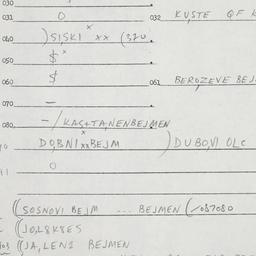 030
031 O 032 KUSTE QF K
040 )SISKI xx (320.
050 $ x
060 $ 061 BEROZEVE BEJ
070 —
080 —/KASTTANENBEJMEN
DOBNIxxBEJM )DUBOVI OLC
O
((SOSNOVI BEJM --- BEJMEN (/087080
((JOL8K8ES
((JA,LENI BEJMEN